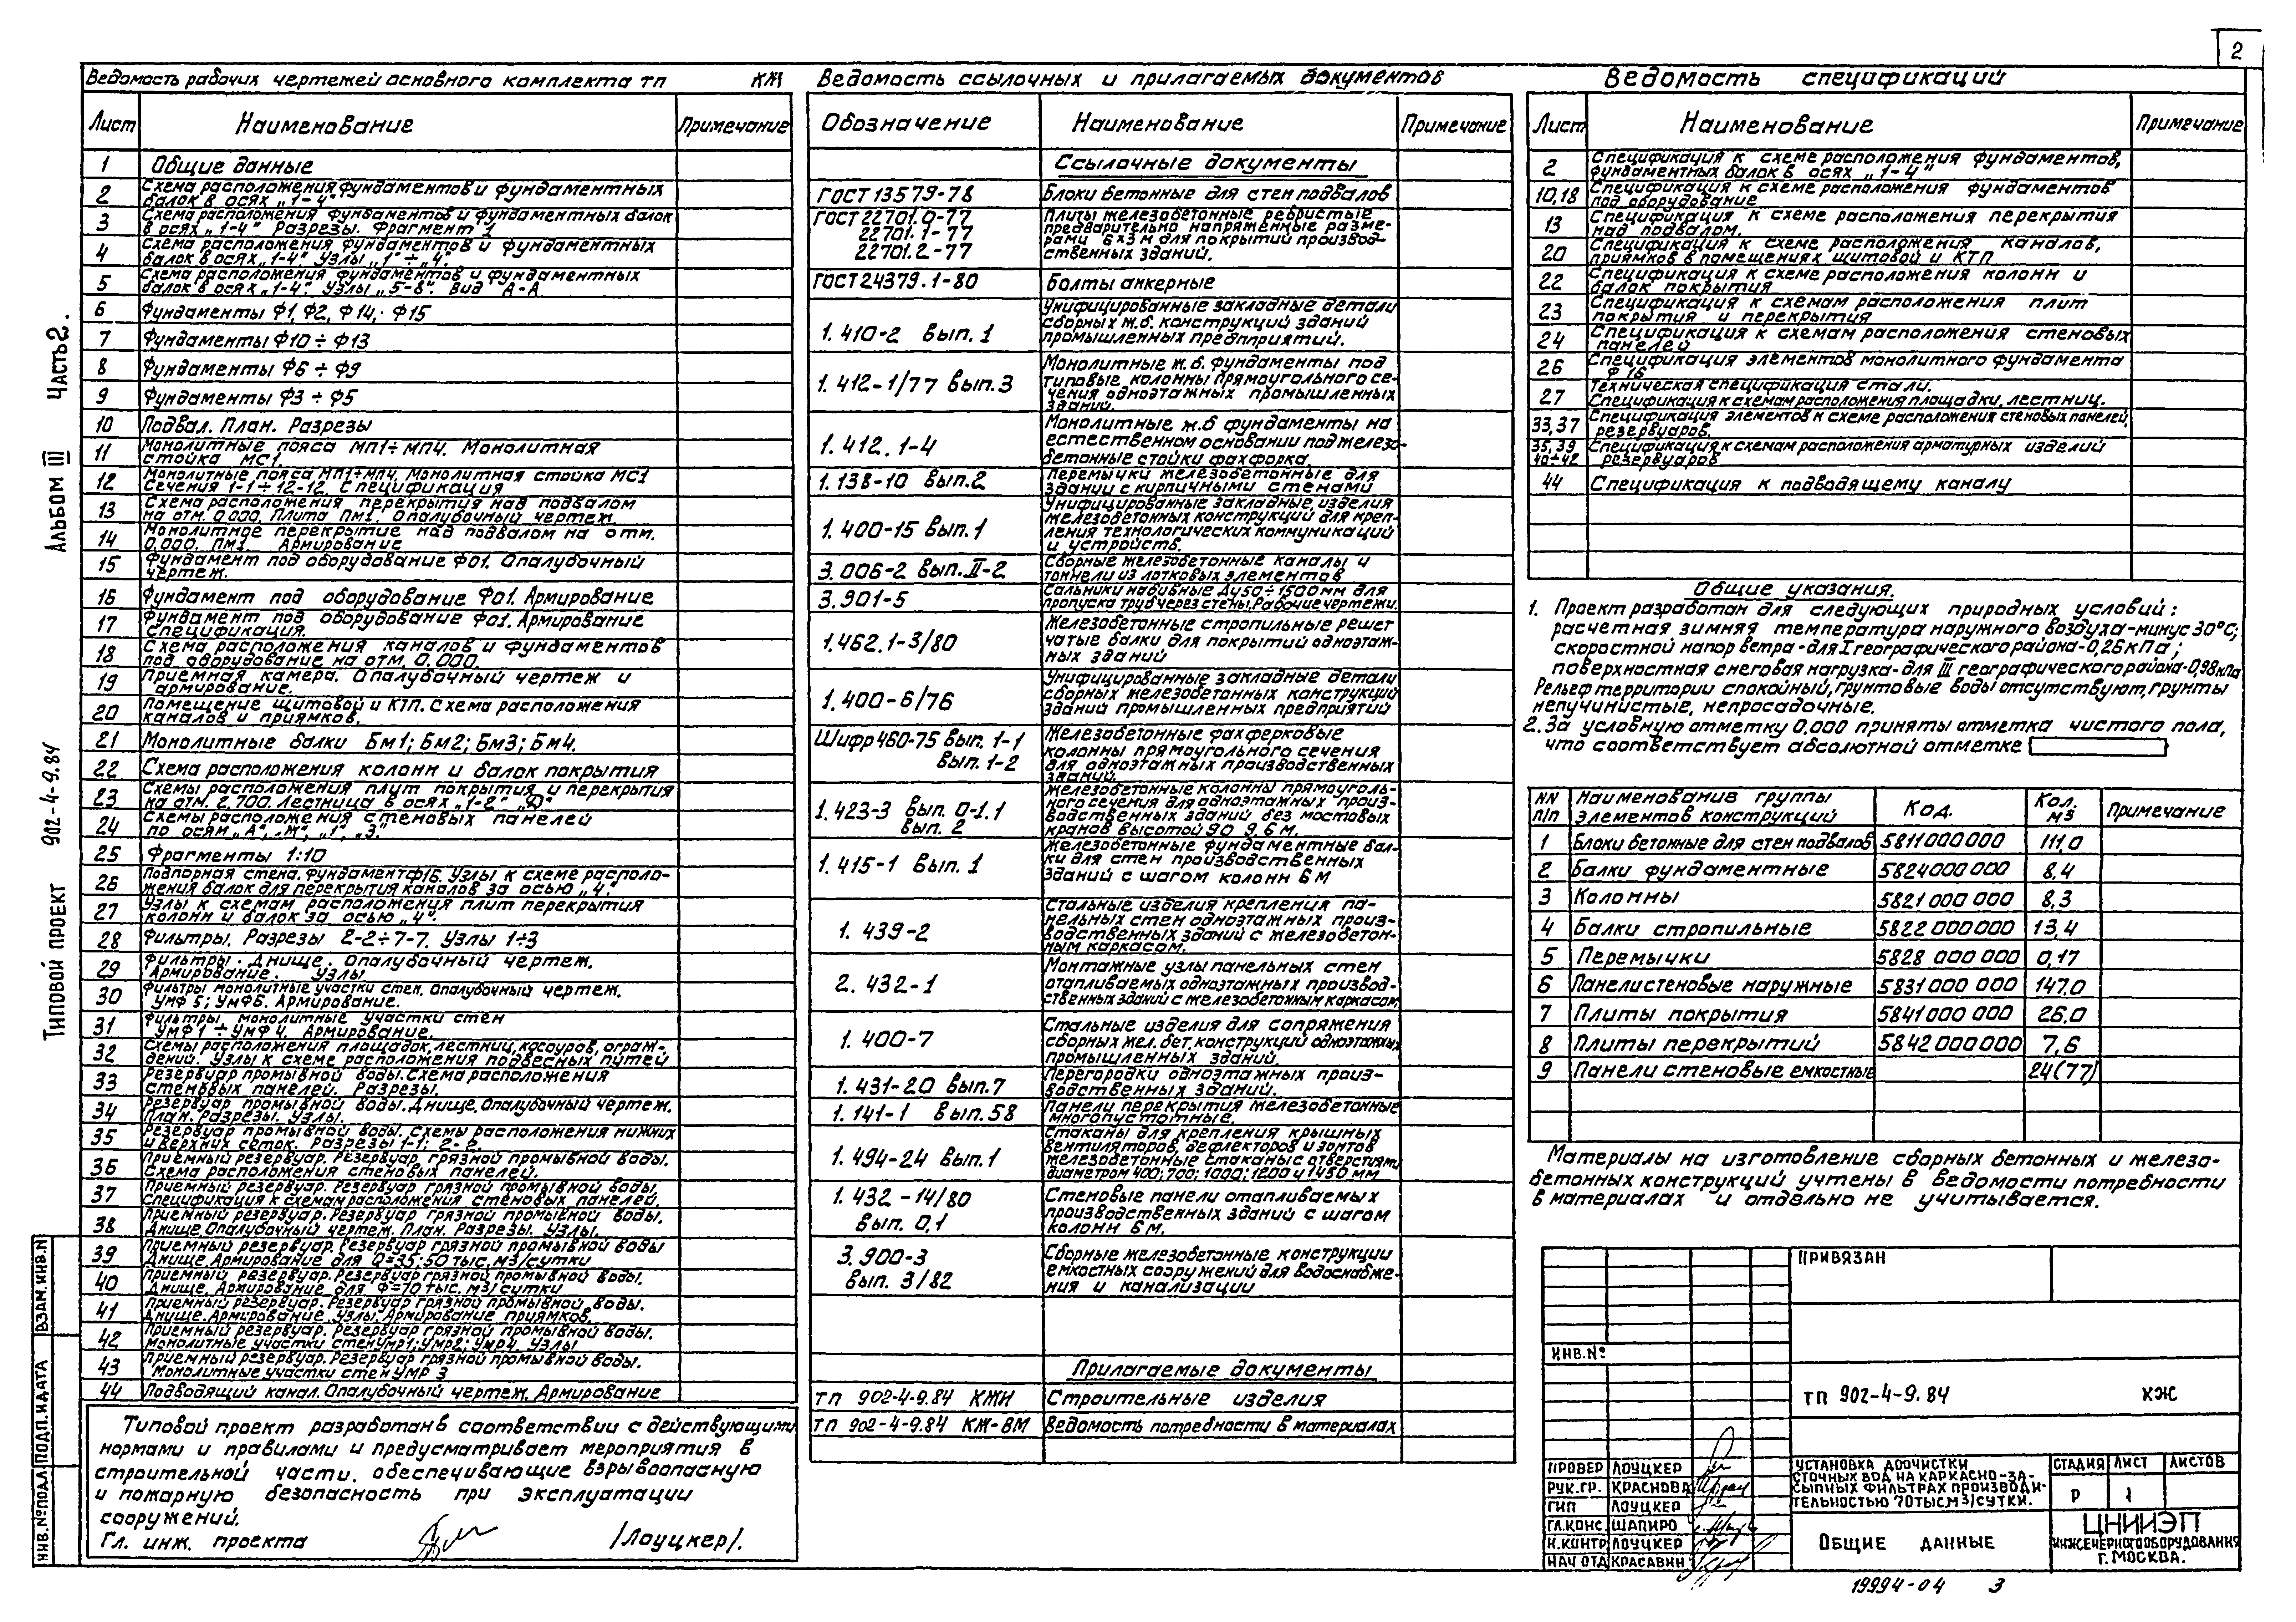 2
Ведомость рабочих чертежей основного комплекта ТП КЖ
Лист Наименование Примечание
1 Общие данные
2 Схема расположения фундаментов и фундаментных
балок в осях „1-4"
3 Схема расположения фундаментов и фундаментных балок
в осях „1-4" Разрезы. Фрагмент 1
4 Схема расположения фундаментов и фундаментных
балок в осях „1-4". Узлы „1" ÷ „4".
5 Схема расположения фундаментов и фундаментных
балок в осях „1-4". Узлы „5-8". Вид "А-А
6 Фундаменты Ф1, Ф2, Ф14, Ф15
7 Фундаменты Ф10 ÷ Ф13
8 Фундаменты Ф6 ÷ Ф9
9 Фундаменты Ф3 ÷ Ф5
10 Подвал. План. Разрезы
11 Монолитные пояса МП1÷МП4. Монолитная
стойка МС1.
12 Монолитные пояса МП1÷МП4. Монолитная стойка МС1
Сечения 1-1 ÷ 12-12. Спецификация
13 Схема расположения перекрытия над подвалом
на отм. 0.000. Плита Пм1. Опалубочный чертеж.
14 Монолитное перекрытие над подвалом на отм.
0.000. ПМ1 Армирование
15 Фундамент под оборудование Фо1. Опалубочный
чертеж.
16 Фундамент под оборудование Фо1. Армирование
17 Фундамент под оборудование Фо1. Армирование
Спецификация.
18 Схема расположения каналов и фундаментов
под оборудование на отм. 0.000.
19 Приемная камера. Опалубочный чертеж и
армирование.
20 Помещение щитовой и КТП. Схема расположения
каналов и приямков.
21 Монолитные балки Бм1; Бм2; Бм3; Бм4.
22 Схема расположения колонн и балок покрытия
23 Схемы расположения плит покрытия и перекрытия
на отм. 2.700. Лестница в осях „1-2" „Д"
24 Схемы расположения стеновых панелей
по осям „А", „Ж", „1", „3".
25 Фрагменты 1:10
26 Подпорная стена. Фундамент Ф16. Узлы к схеме располо-
жения балок для перекрытия каналов за осью „4".
27 Узлы к схемам расположения плит перекрытия
колонн и балок за осью „4".
28 Фильтры. Разрезы 2-2÷7-7. Узлы 1÷3
29 Фильтры. Днище. Опалубочный чертеж.
Армирование. Узлы
30 Фильтры монолитные участки стен. Опалубочный чертеж.
Умф 5; Умф6. Армирование.
31 Фильтры, монолитные участки стен
Умф1 ÷ Умф 4. Армирование.
32 Схемы расположения площадок, лестниц, косоуров, ограж-
дений. Узлы к схеме расположения подвесных путей
33 Резервуар промывной воды. Схема расположения
стеновых панелей. Разрезы.
34 Резервуар промывной воды. Днище. Опалубочный чертеж.
План. Разрезы. Узлы.
35 Резервуар промывной воды. Схемы расположения нижних
и верхних сеток. Разрезы 1-1; 2-2.
36 Приемный резервуар. Резервуар грязной промывной воды.
Схема расположения стеновых панелей.
37 Приемный резервуар. Резервуар грязной промывной воды.
Спецификация к схемам расположения стеновых панелей.
38 Приемный резервуар. Резервуар грязной промывной воды.
Днище Опалубочный чертеж. План. Разрезы. Узлы.
39 Приемный резервуар. Резервуар грязной промывной воды
Днище. Армирование для Q=35; 50 тыс. м3/сутки
40 Приемный резервуар. Резервуар грязной промывной воды.
Днище. Армирование для Q=70 тыс. м3/сутки
41 Приемный резервуар. Резервуар грязной промывной воды.
Днище. Армирование. Узлы. Армирование приямков.
42 Приемный резервуар. Резервуар грязной промывной воды.
Монолитные участки стен Умр1; Умр2; Умр4. Узлы
43 Приемный резервуар. Резервуар грязной промывной воды.
Монолитные участки стен Умр 3
44 Подводящий канал. Опалубочный чертеж. Армирование
Типовой проект разработан в соответствии с действующими
нормами и правилами и предусматривает мероприятия в
строительной части, обеспечивающие взрывоопасную
и пожарную безопасность при эксплуатации
сооружений.
Гл. инж. проекта /Лоуцкер/.
Ведомость ссылочных и прилагаемых документов
Обозначение Наименование Примечание
Ссылочные документы
ГОСТ 13579-78 Блоки бетонные для стен подвалов
ГОСТ 22701.0-77 Плиты железобетонные ребристые
22701.1-77 предварительно напряженные разме-
рами 6х3 м для покрытий производ-
22701.2-77 ственных зданий.
ГОСТ 24379.1-80 Болты анкерные
Унифицированные закладные детали
1.410-2 вып. 1 сборных ж.б. конструкций зданий
промышленных предприятий.
Монолитные ж.б. фундаменты под
1.412-1/77 вып.3 типовые колонны прямоугольного се-
чения одноэтажных промышленных
зданий.
Монолитные ж.б фундаменты на
1.412.1-4 естественном основании под железо-
бетонные стойки фахферка.
1.138-10 вып.2 Перемычки железобетонные для
зданий с кирпичными стенами
Унифицированные закладные изделия
1.400-15 вып.1 железобетонных конструкций для креп-
ления технологических коммуникаций
и устройств.
3.006-2 вып.II-2 Сборные железобетонные каналы и
тоннели из лотковых элементов
3.901-5 Сальники набивные Ду50÷1500мм для
пропуска труб через стены. Рабочие чертежи.
1.462.1-3/80 Железобетонные стропильные решет
чатые балки для покрытий одноэтаж-
ных зданий
Унифицированные закладные детали
1.400-6/76 сборных железобетонных конструкций
зданий промышленных предприятий
Шифр 460-75 вып. 1-1 Железобетонные фахферковые
вып. 1-2 колонны прямоугольного сечения
для одноэтажных производственных
зданий.
Железобетонные колонны прямоуголь-
1.423-3 вып. 0-1.1 ного сечения для одноэтажных произ-
вып. 2 водственных зданий без мостовых
кранов высотой до 9.6 м.
1.415-1 вып. 1 Железобетонные фундаментные бал-
ки для стен производственных
зданий с шагом колонн 6 м
Стальные изделия крепления па-
1.439-2 нельных стен одноэтажных произ-
водственных зданий с железобетон-
ным каркасом.
Монтажные узлы панельных стен
2.432-1 отапливаемых одноэтажных производ-
ственных зданий с железобетонным каркасом
1.400-7 Стальные изделия для сопряжения
сборных жел. бет. конструкций одноэтажных
промышленных зданий.
1.431-20 вып.7 Перегородки одноэтажных произ-
водственных зданий.
1.141-1 вып.58 Панели перекрытия железобетонные
многопустотные.
Стаканы для крепления крышных
1.494-24 вып.1 вентиляторов, дефлекторов и зонтов
железобетонные стаканы с отверстиями
диаметром 400; 700; 1000; 1200 и 1450 мм
1.432-14/80 Стеновые панели отапливаемых
вып. 0,1 производственных зданий с шагом
колонн 6 м.
3.900-3 Сборные железобетонные конструкции
вып. 3/82 емкостных сооружений для водоснабже-
ния и канализации
Прилагаемые документы
ТП 902-4-9.84 КЖИ Строительные изделия
ТП 902-4-9.84 КЖ-ВМ Ведомость потребности в материалах
Ведомость спецификаций
Лист Наименование Примечание
2 Спецификация к схеме расположения фундаментов,
фундаментных балок в осях „1-4"
10,18 Спецификация к схеме расположения фундаментов
под оборудование
13 Спецификация к схеме расположения перекрытия
над подвалом.
20 Спецификация к схеме расположения каналов,
приямков в помещениях щитовой и КТП
22 Спецификация к схеме расположения колонн и
балок покрытия
23 Спецификация к схемам расположения плит
покрытия и перекрытия
24 Спецификация к схемам расположения стеновых
панелей
26 Спецификация элементов монолитного фундамента
Ф 16
27 Техническая спецификация стали.
Спецификация к схемам расположения площадки, лестниц.
33,37 Спецификация элементов к схеме расположения стеновых панелей,
резервуаров.
35,39 Спецификация к схемам расположения арматурных изделий
40÷42 резервуаров
44 Спецификация к подводящему каналу
Общие указания.
1. Проект разработан для следующих природных условий:
расчетная зимняя температура наружного воздуха-минус 30°С;
скоростной напор ветра-для I географического района-0,26 кПа;
поверхностная снеговая нагрузка-для III географического района-0,98 кПа
Рельеф территории спокойный, грунтовые воды отсутствуют, грунты
непучинистые, непросадочные.
2. За условную отметку 0.000 приняты отметка чистого пола,
что соответствует абсолютной отметке
NN п/п Наименование группы элементов конструкций Код. Кол. м3 Примечание
1 Блоки бетонные для стен подвалов 5811000000 111,0
2 Балки фундаментные 5824000000 8,4
3 Колонны 5821000000 8,3
4 Балки стропильные 5822000000 13,4
5 Перемычки 5828000000 0,17
6 Панели стеновые наружные 5831000000 147.0
7 Плиты покрытия 5841000000 26.0
8 Плиты перекрытий 5842000000 7,6
9 Панели стеновые емкостные 24(77)
Материалы на изготовление сборных бетонных и железо-
бетонных конструкций учтены в ведомости потребности
в материалах и отдельно не учитывается.
ПРИВЯЗАН
ИНВ.№
ТП 902-4-9.84 КЖ
ПРОВЕР ЛОУЦКЕР
РУК.ГР. КРАСНОВА
ГИП ЛОУЦКЕР
ГЛ.КОНС. ШАПИРО
Н.КОНТР ЛОУЦКЕР
НАЧ ОТД КРАСАВИН
УСТАНОВКА ДООЧИСТКИ
СТОЧНЫХ ВОД НА КАРКАСНО-ЗА-
СЫПНЫХ ФИЛЬТРАХ ПРОИЗВОДИ-
ТЕЛЬНОСТЬЮ 70 ТЫС.М3/СУТКИ.
СТАДИЯ ЛИСТ ЛИСТОВ
Р 1
ОБЩИЕ ДАННЫЕ
ЦНИИЭП
ИНЖЕНЕРНОГО ОБОРУДОВАНИЯ
Г. МОСКВА.
19994-04 3
ТИПОВОЙ ПРОЕКТ 902-4-9.84 АЛЬБОМ III ЧАСТЬ 2.
ИНВ.№ ПОДЛ. ПОДП. И ДАТА ВЗАМ. ИНВ. N